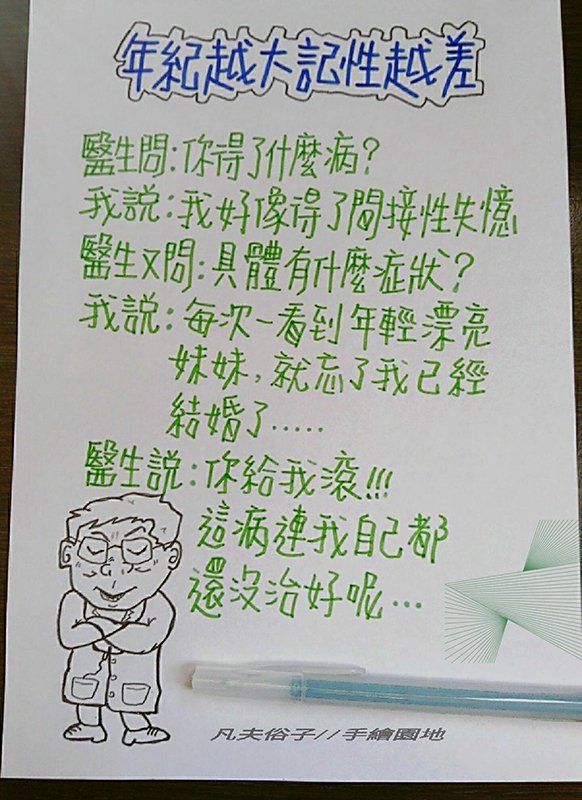 年紀越大記性越差
醫生問:你得了什麼病?
我説:我好像得了間接性失憶
醫生又問:具體有什麼症狀?
我説:每次一看到年輕漂亮
妹妹,就忘了我已經
結婚了.....
醫生説:你給我滾!!!
這病連我自己都
還沒治好呢...
凡夫俗子//手繪園地